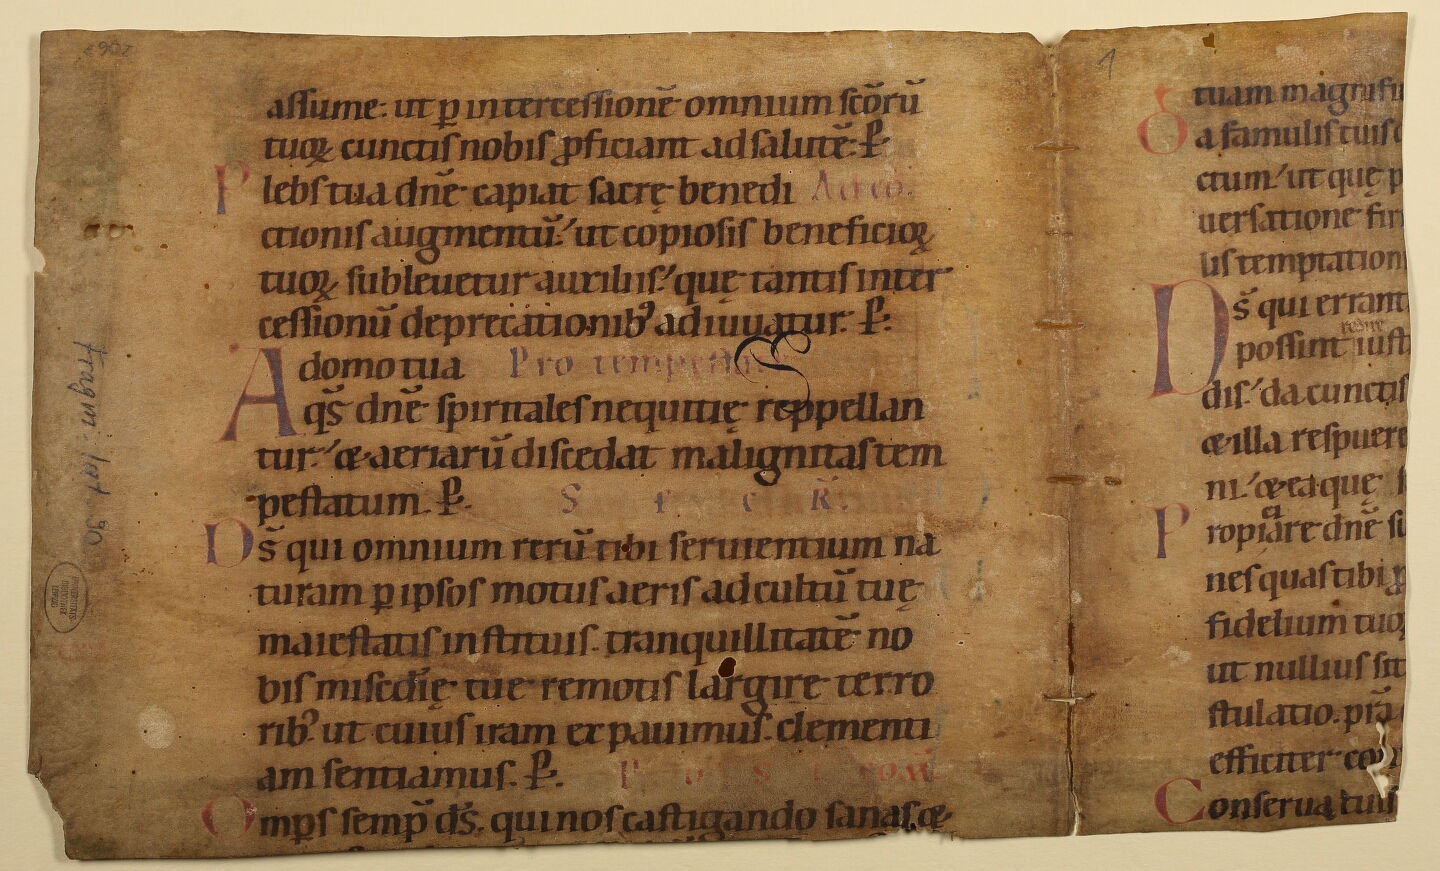 assume: ut ꝑ intercessionē omnium scōrū
tuoꝝ cunctis nobis ꝓficiant ad salutē: P̱
Plebs tua dn̄e capiat sacrę benedi Ad cō.
ctionis augmentū: ut copiosis beneficioꝝ
tuoꝝ subleuetur auxiliis: quę tantis inter
cessionū deprecationib; adiuuatur. P̱:
A domo tua Pro tempestate
qs̄ dn̄e spiritales nequitię reppellan
tur: & aeriarū discedat malignitas tem
pestatum. P̱. S e c R̄.
Ds̄ qui omnium rerū tibi seruientium na
turam ꝑ ipsos motus aeris ad cultū tuę
maiestatis instituis. tranquillitatē no
bis miscdīę tue remotis largire terro
rib; ut cuius iram expauimus. clementi
am sentiamus. P̱. P o s t com̄
Omps semp̄ ds̄. qui nos castigando sanas. &
tuam magnifi
a famulis tuis
ctum: ut quę p
uersatione fir
lis temptation
Ds̄ qui errant
redire
possint iust
dis: da cunctis
& illa respuere
ni: & ea que s
Propiciare dn̄e su
nes quas tibi ꝓ
fidelium tuoꝝ
ut nullius sit
stulatio. prā
efficiter con
Conserua tuis
Fragm. lat. 90
1